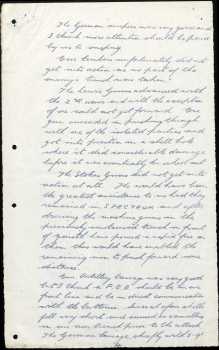 The German snipers were very good and
I think more attention should be paid
by us to sniping.
Our Bombers unfortunately did not
get into action as no part of the
enemy's trench was taken.
The Lewis Guns advanced with
the 2nd wave and with the exception
of one could not get forward. One
gun succeeded in pushing through
with one of the isolated parties and
got into position in a shell hole
where it did considerable damage
before it was eventually knocked out.
The Stokes Guns did not get into
action at all. They would have been
the greatest assistance to us had they
remained in and after
the machine guns in the
trench in front
of
them this would have enabled the
remaining men to push forward more
Our Artillery Barrage was very good
but I think a F.O.O. should be in our
front line and be in direct communication
with the batteries. Several of our shells
fell very short and caused us casualties
in our own trench prior to the attack.
The German barrage chiefly